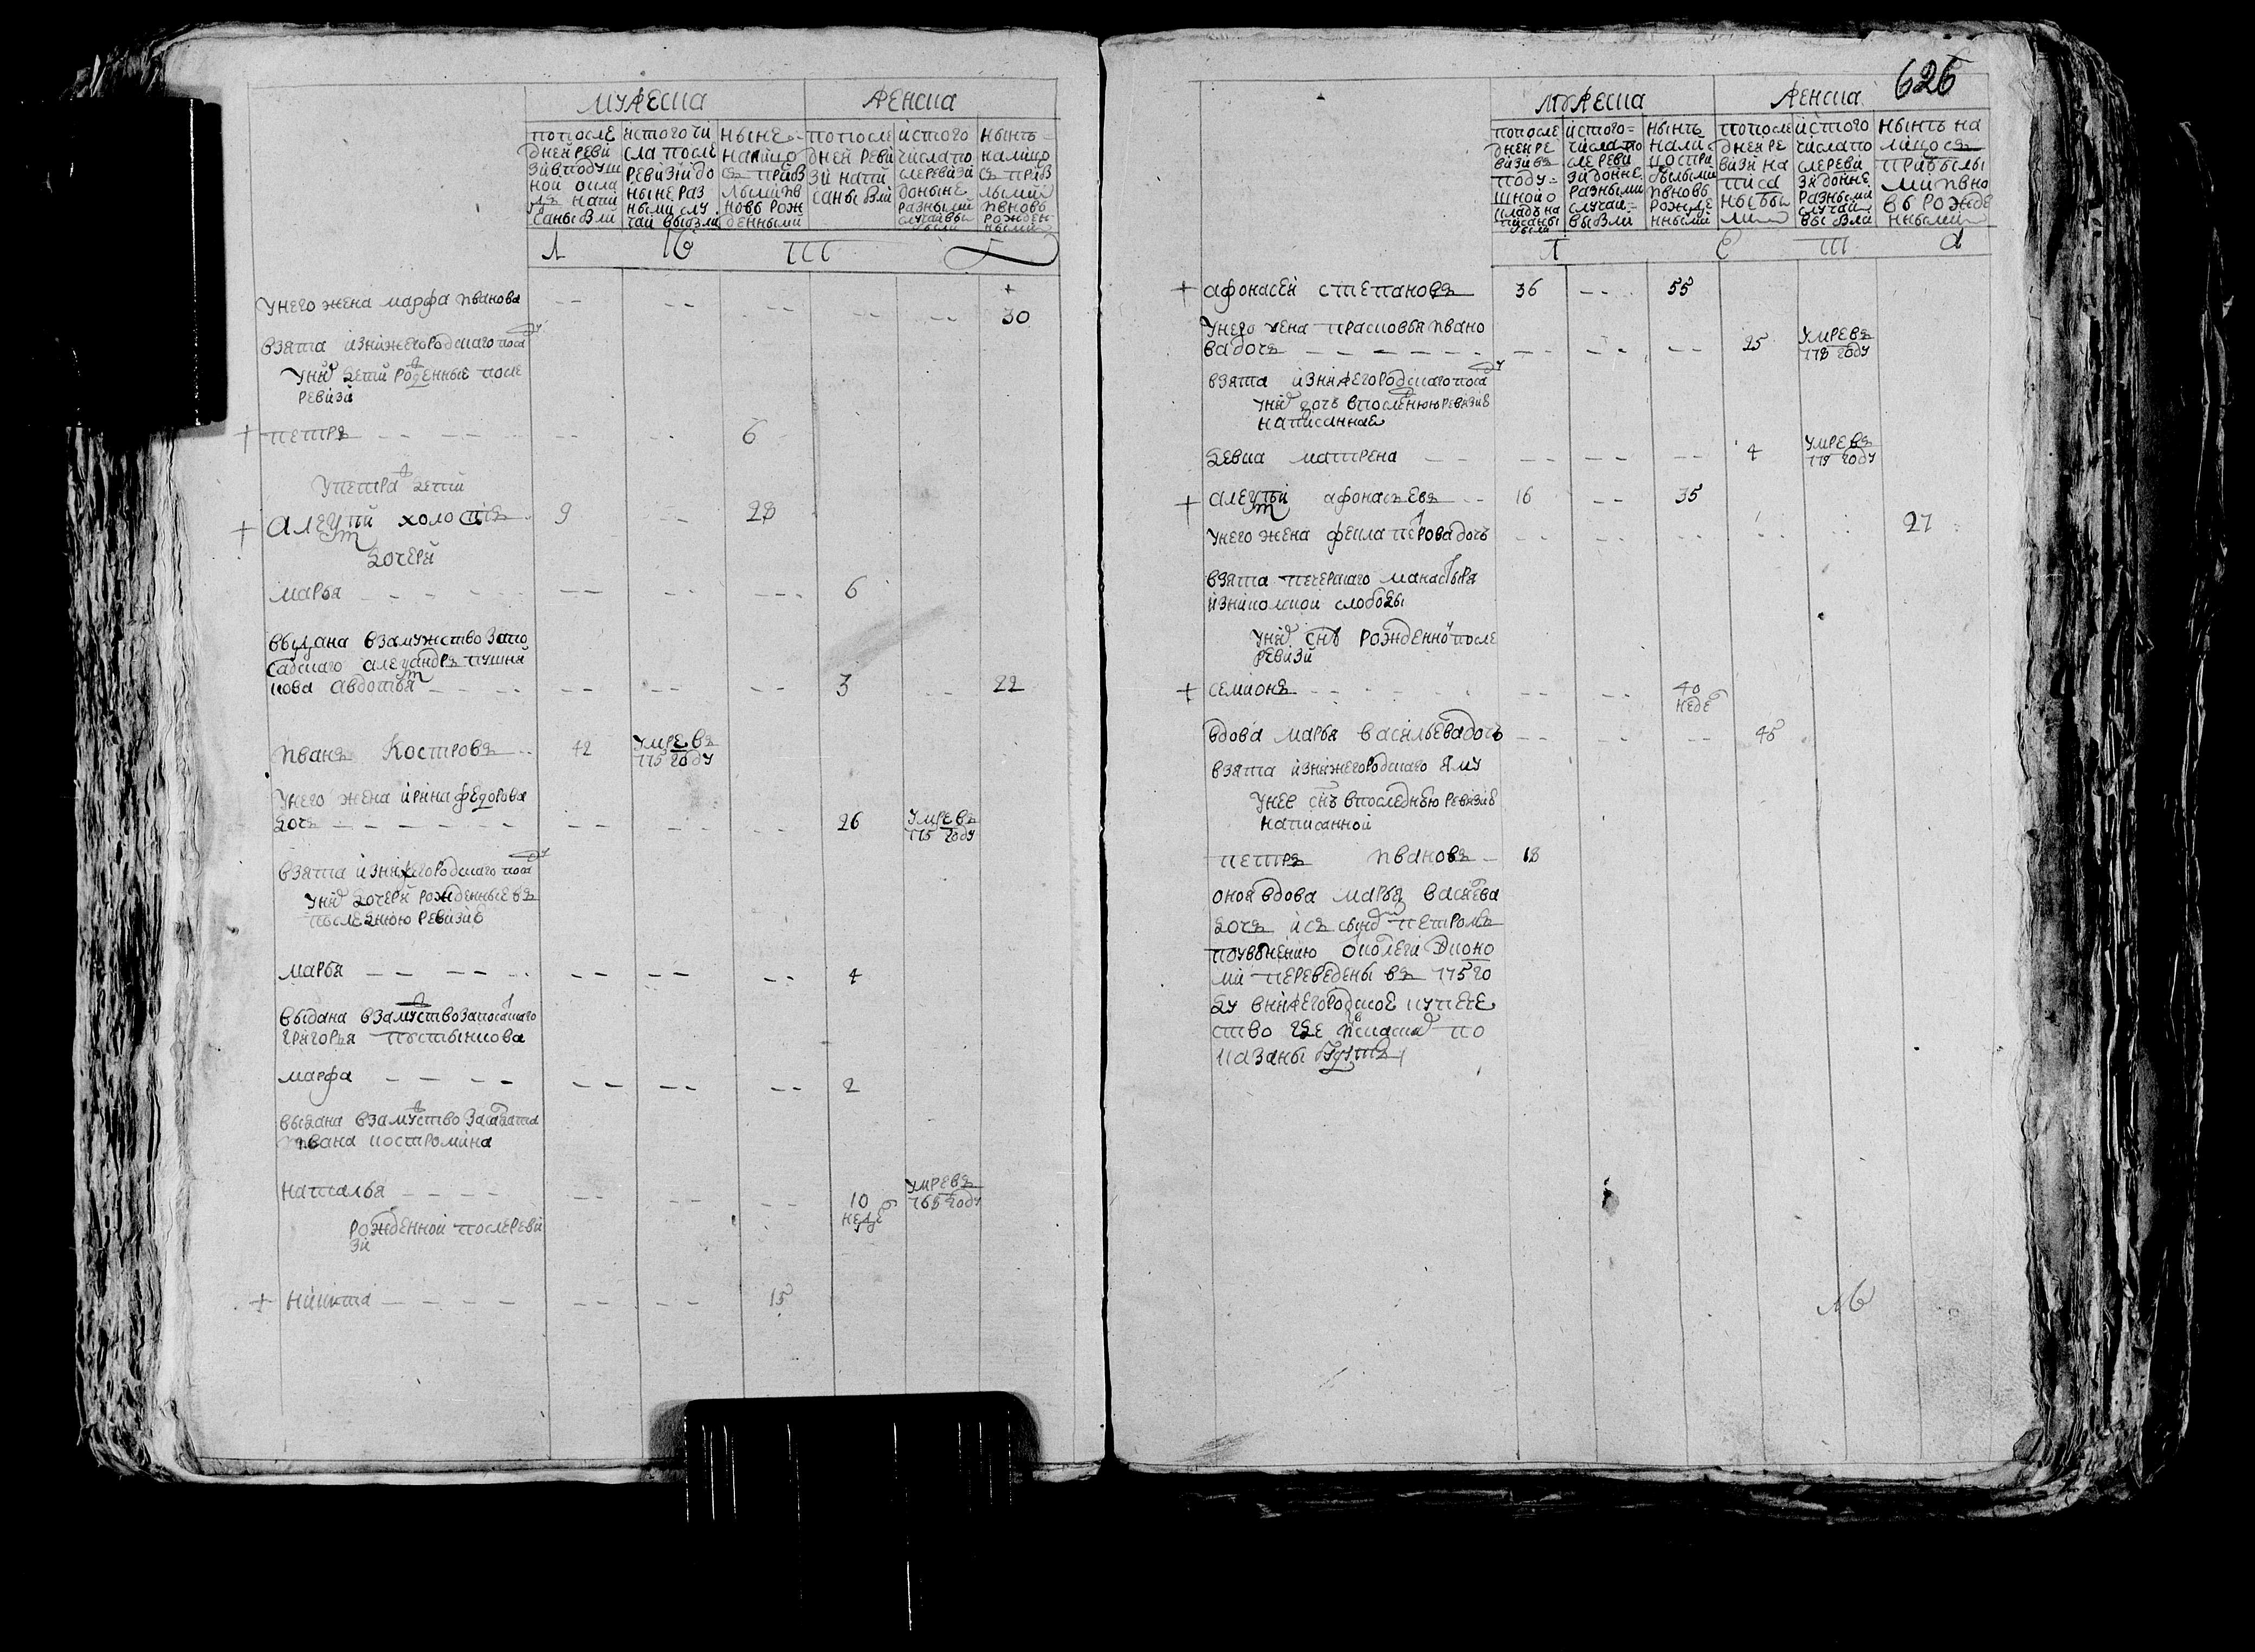 мужеска
женска
попосле
дней реви
зи в подуш
ной окла
дъ напи
саны были
ис того чи
сла после
ревизии до
ныне раз
ными слу
чаи выбыли
ныне
налицо
съ приб
лыми и в
новь рож
денными
попосле
дней реви
зи напи
саны были
ис того
числа по
сле ревизи
до ныне
разными
случаи вы
были
нынъ
налицо
съ приб
лыми
и вновь
рожден
ными
у него жена марфа иванова
30
взята из нижегородскаго посаду
у них детей рожденные после
ревизи
петръ 6
у петра детей
алексей холостъ 9 28
дочери
марья 6
выдана взамужство за по
садскаго александра пушни
кова авдотья 3 22
иванъ костровъ 42 умре въ
775 году
у него жена ирина федорова
дочь 26 умре въ
775 году
взята из нижегородскаго посаду
у них дочери рожденные въ
последнюю ревизию
марья 4
выдана взамужство за посацкаго
григорья пустынкова
марфа 2
выдана взамужство за салдата
ивана костромина
наталья 10 неде умре въ
765 году
рожденной после реви
зи
никита 15
626
мужеска
женска
попосле
дней ре
визи въ
поду
шной о
кладъ на
писаны
были
ис того
числа по
сле реви
зи до нне
разными
случаи
выбыли
нынъ
нали
цо с при
былыми
и вновь
рожде
нными
попосле
дней ре
визи на
писа
ны бы
ли
ис того
числа по
сле реви
зи до нне
разными
случаи
выбыли
нынъ на
лицо съ
прибылы
ми и вно
вь рожде
нными
афонасей степановъ 36 55
у него жена прасковья ивано
ва дочь 25 умре въ
778 году
взята из нижегородскаго посаду
у них дочь в последнюю ревизию
написанная
девка матрена 4 умре въ
779 году
алексей афонасьевъ 16 35
у него жена фекла петрова дочь 27
взята печерскаго манастыря
из никольской слободы
у них снъ рожденной после
ревизи
семионъ 40
неде
вдова марья васильева дочь 45
взята из нижегородскаго яму
у нее снъ в последнюю ревизию
написанной
петръ ивановъ 18
оноя вдова марья васильева
дочь и съ сыном петромъ
по увольнению коллеги эконо
ми переведены въ 775 го
ду в нижегородское купече
ство где и в скасках по
казаны будутъ